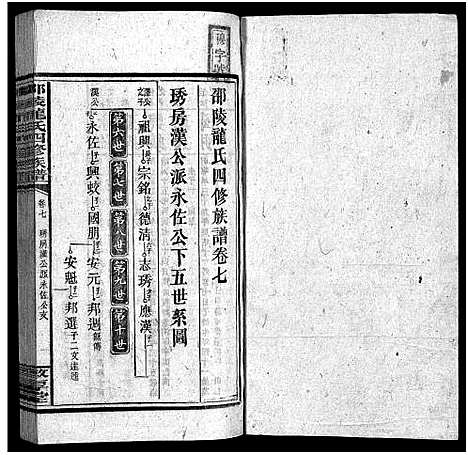 字號
邵陵龍氏四修族譜卷七
琇房漢公派永佐公下五世系圖
祖興 宗銘 德清 志琇 應漢
第六世 第七世 第八世 第九世 第十世
漢公子 永佐 興蛟 國朋 安元 邦週
安魁 邦選
邵陵龍氏四修族譜
卷七 琇房漢公派永佐公支
敦厚堂